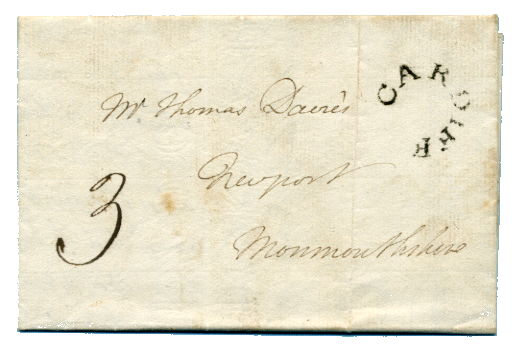 CARDIFF
Mr Thomas Davies
Newport
3
Monmouthshire